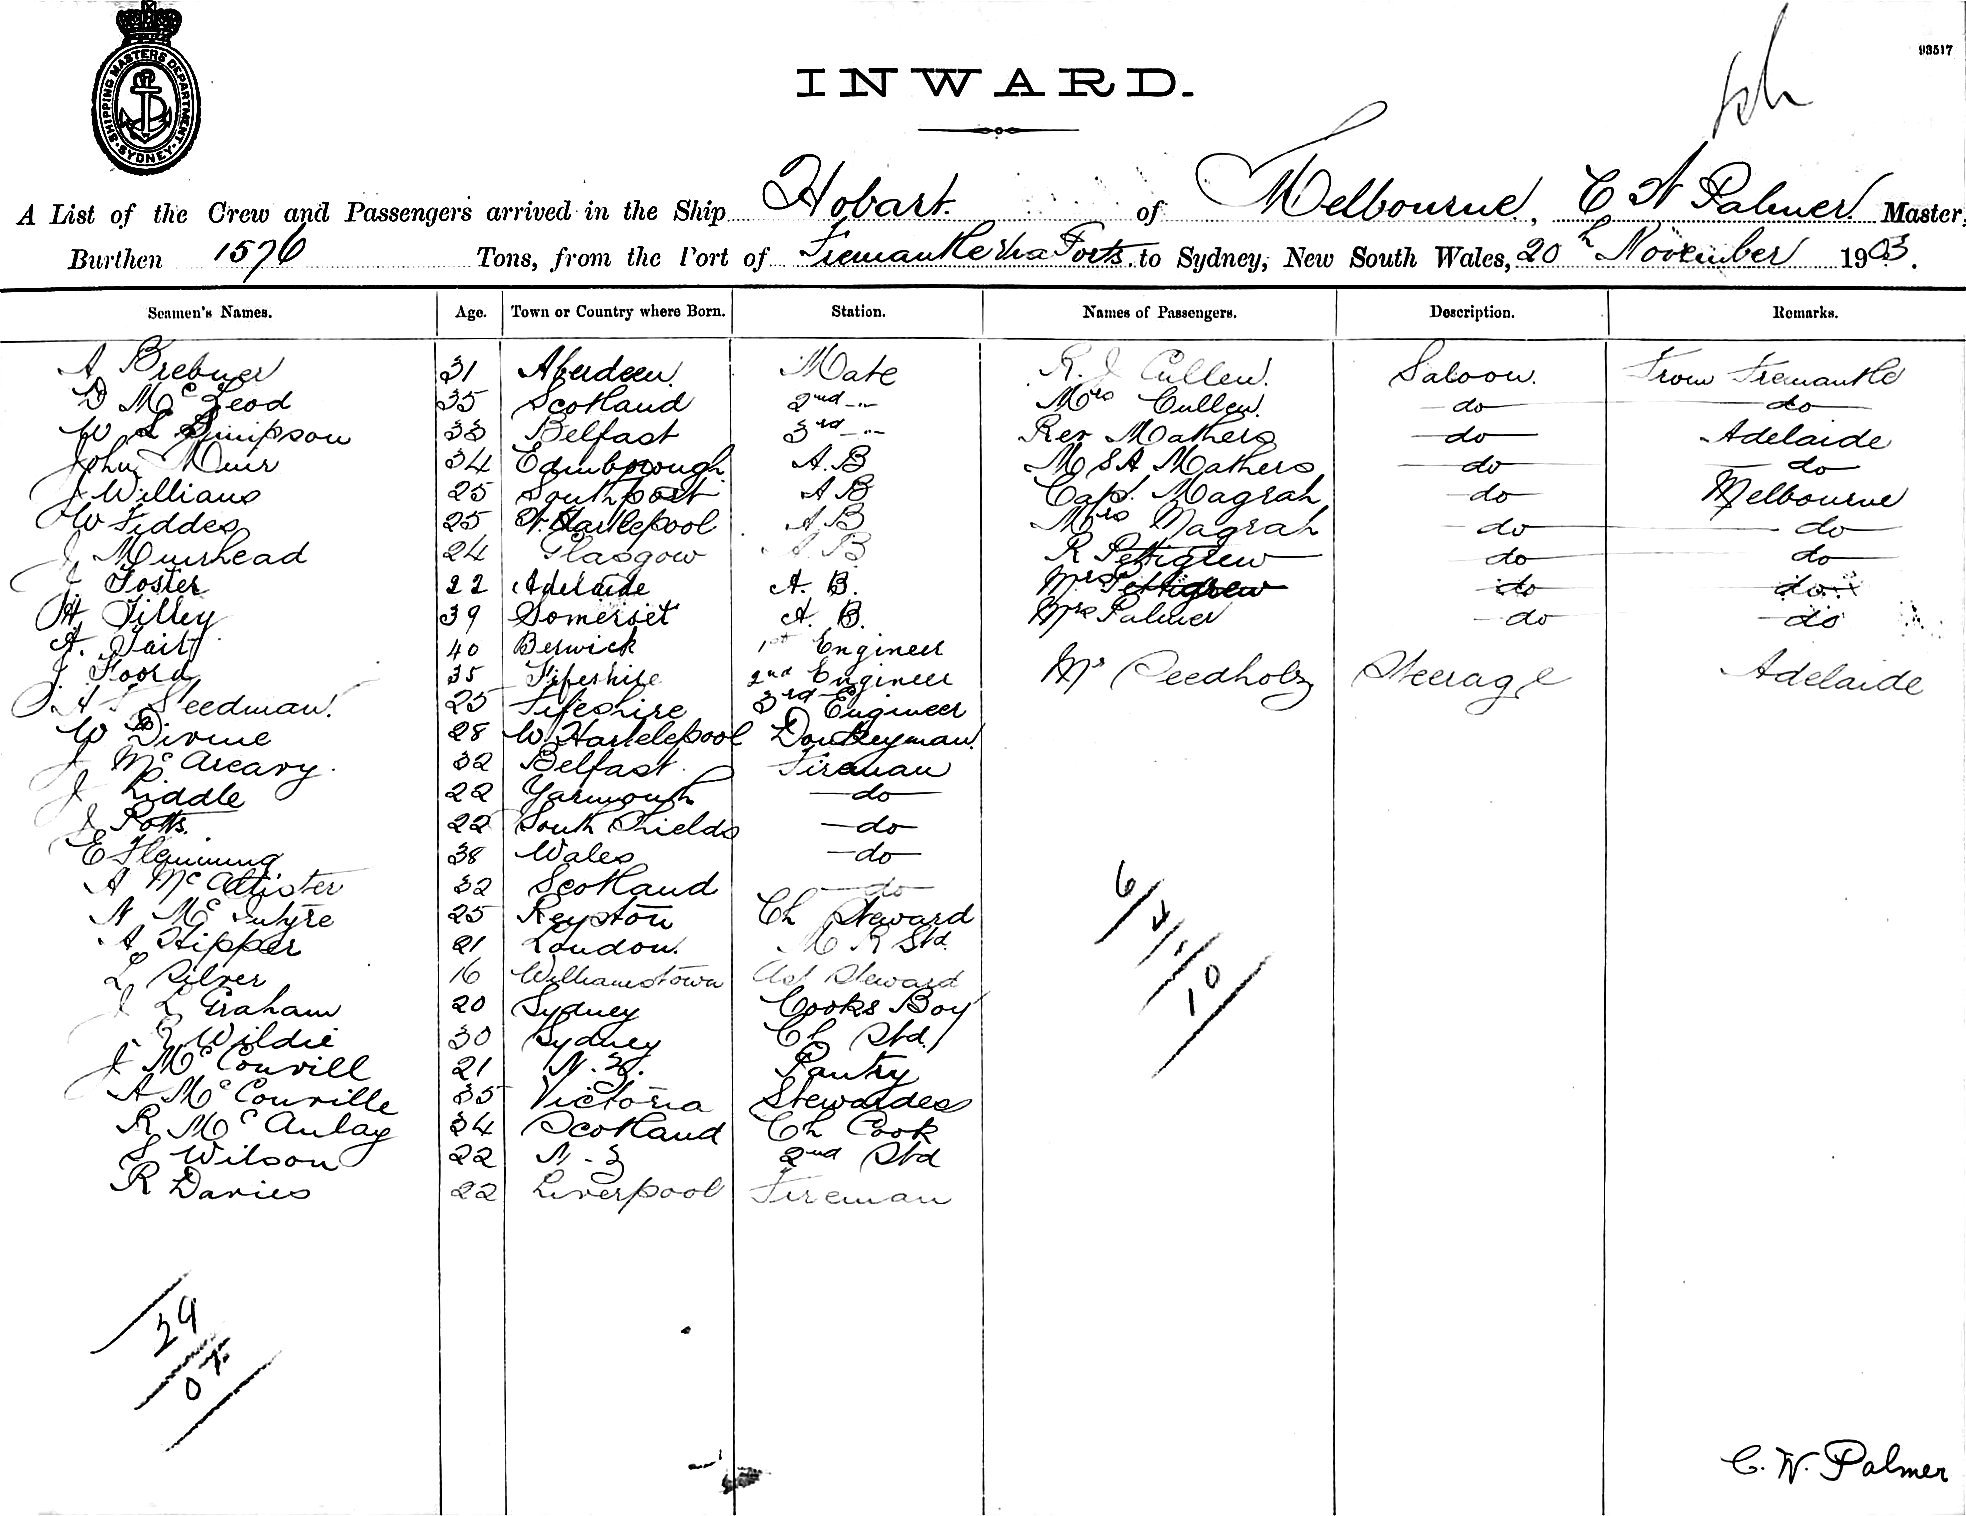 SHIPPING MASTERS DEPARTMENT
SYDNEY
93517
INWARD.
A List of the Crew and Passengers arrived in the Ship Hobart of Melbourne, C W Palmer Master,
Burthen 1576 Tons, from the Port of Fremantle via Ports to Sydney, New South Wales, 20th November 1903.
Seamen's Names. Age. Town or Country where Born. Station. Names of Passengers. Description. Remarks.
A Brebner 31 Aberdeen Mate R. J Cullen. Saloon. From Fremantle
D McLeod 35 Scotland 2nd -"- Mrs Cullen. do do
W L Simpson 33 Belfast 3rd -"- Rev Mathers do Adelaide
John Muir 34 Edinborough A.B M S A Mathers do do
J Williams 25 Southport A B Capt. Magrah do Melbourne
W Fiddes 25 W. Hartlepool A B Mrs Magrah do do
J Muirhead 24 Glasgow A. B R Pettigrew do do
J. Foster 22 Adelaide A. B. Mrs Pettigrew do do
H Tilley 39 Somerset A. B. Mrs Palmer do do
A. Tait 40 Berwick 1st Engineer
J Foord 35 Fifeshire 2nd Engineer Mr Steerage Adelaide
A Steedman. 25 Fifeshire 3rd Engineer
W Divine 28 W. Hartelepool Donkeyman.
J McAreavy. 32 Belfast. Fireman
J Liddle 22 Yarmouth do
J Potts. 22 South Shields do
E Flemming 38 Wales do
A McAllister 32 Scotland do
N McIntyre 25 Ch Steward
A Hipper 21 London. M R Std.
L Silver 16 Williamstown Ast Steward
J L Graham 20 Sydney Cooks Boy
Wildie 30 Sydney Ch Std.
J McConvill 21 N.Z. Pantry
A McConville 35 Victoria Stewardes
R McAulay 34 Scotland Ch Cook
S Wilson 22 N-Z 2nd Std
R Davies 22 Liverpool Fireman
6
10
29
0
C. W. Palmer